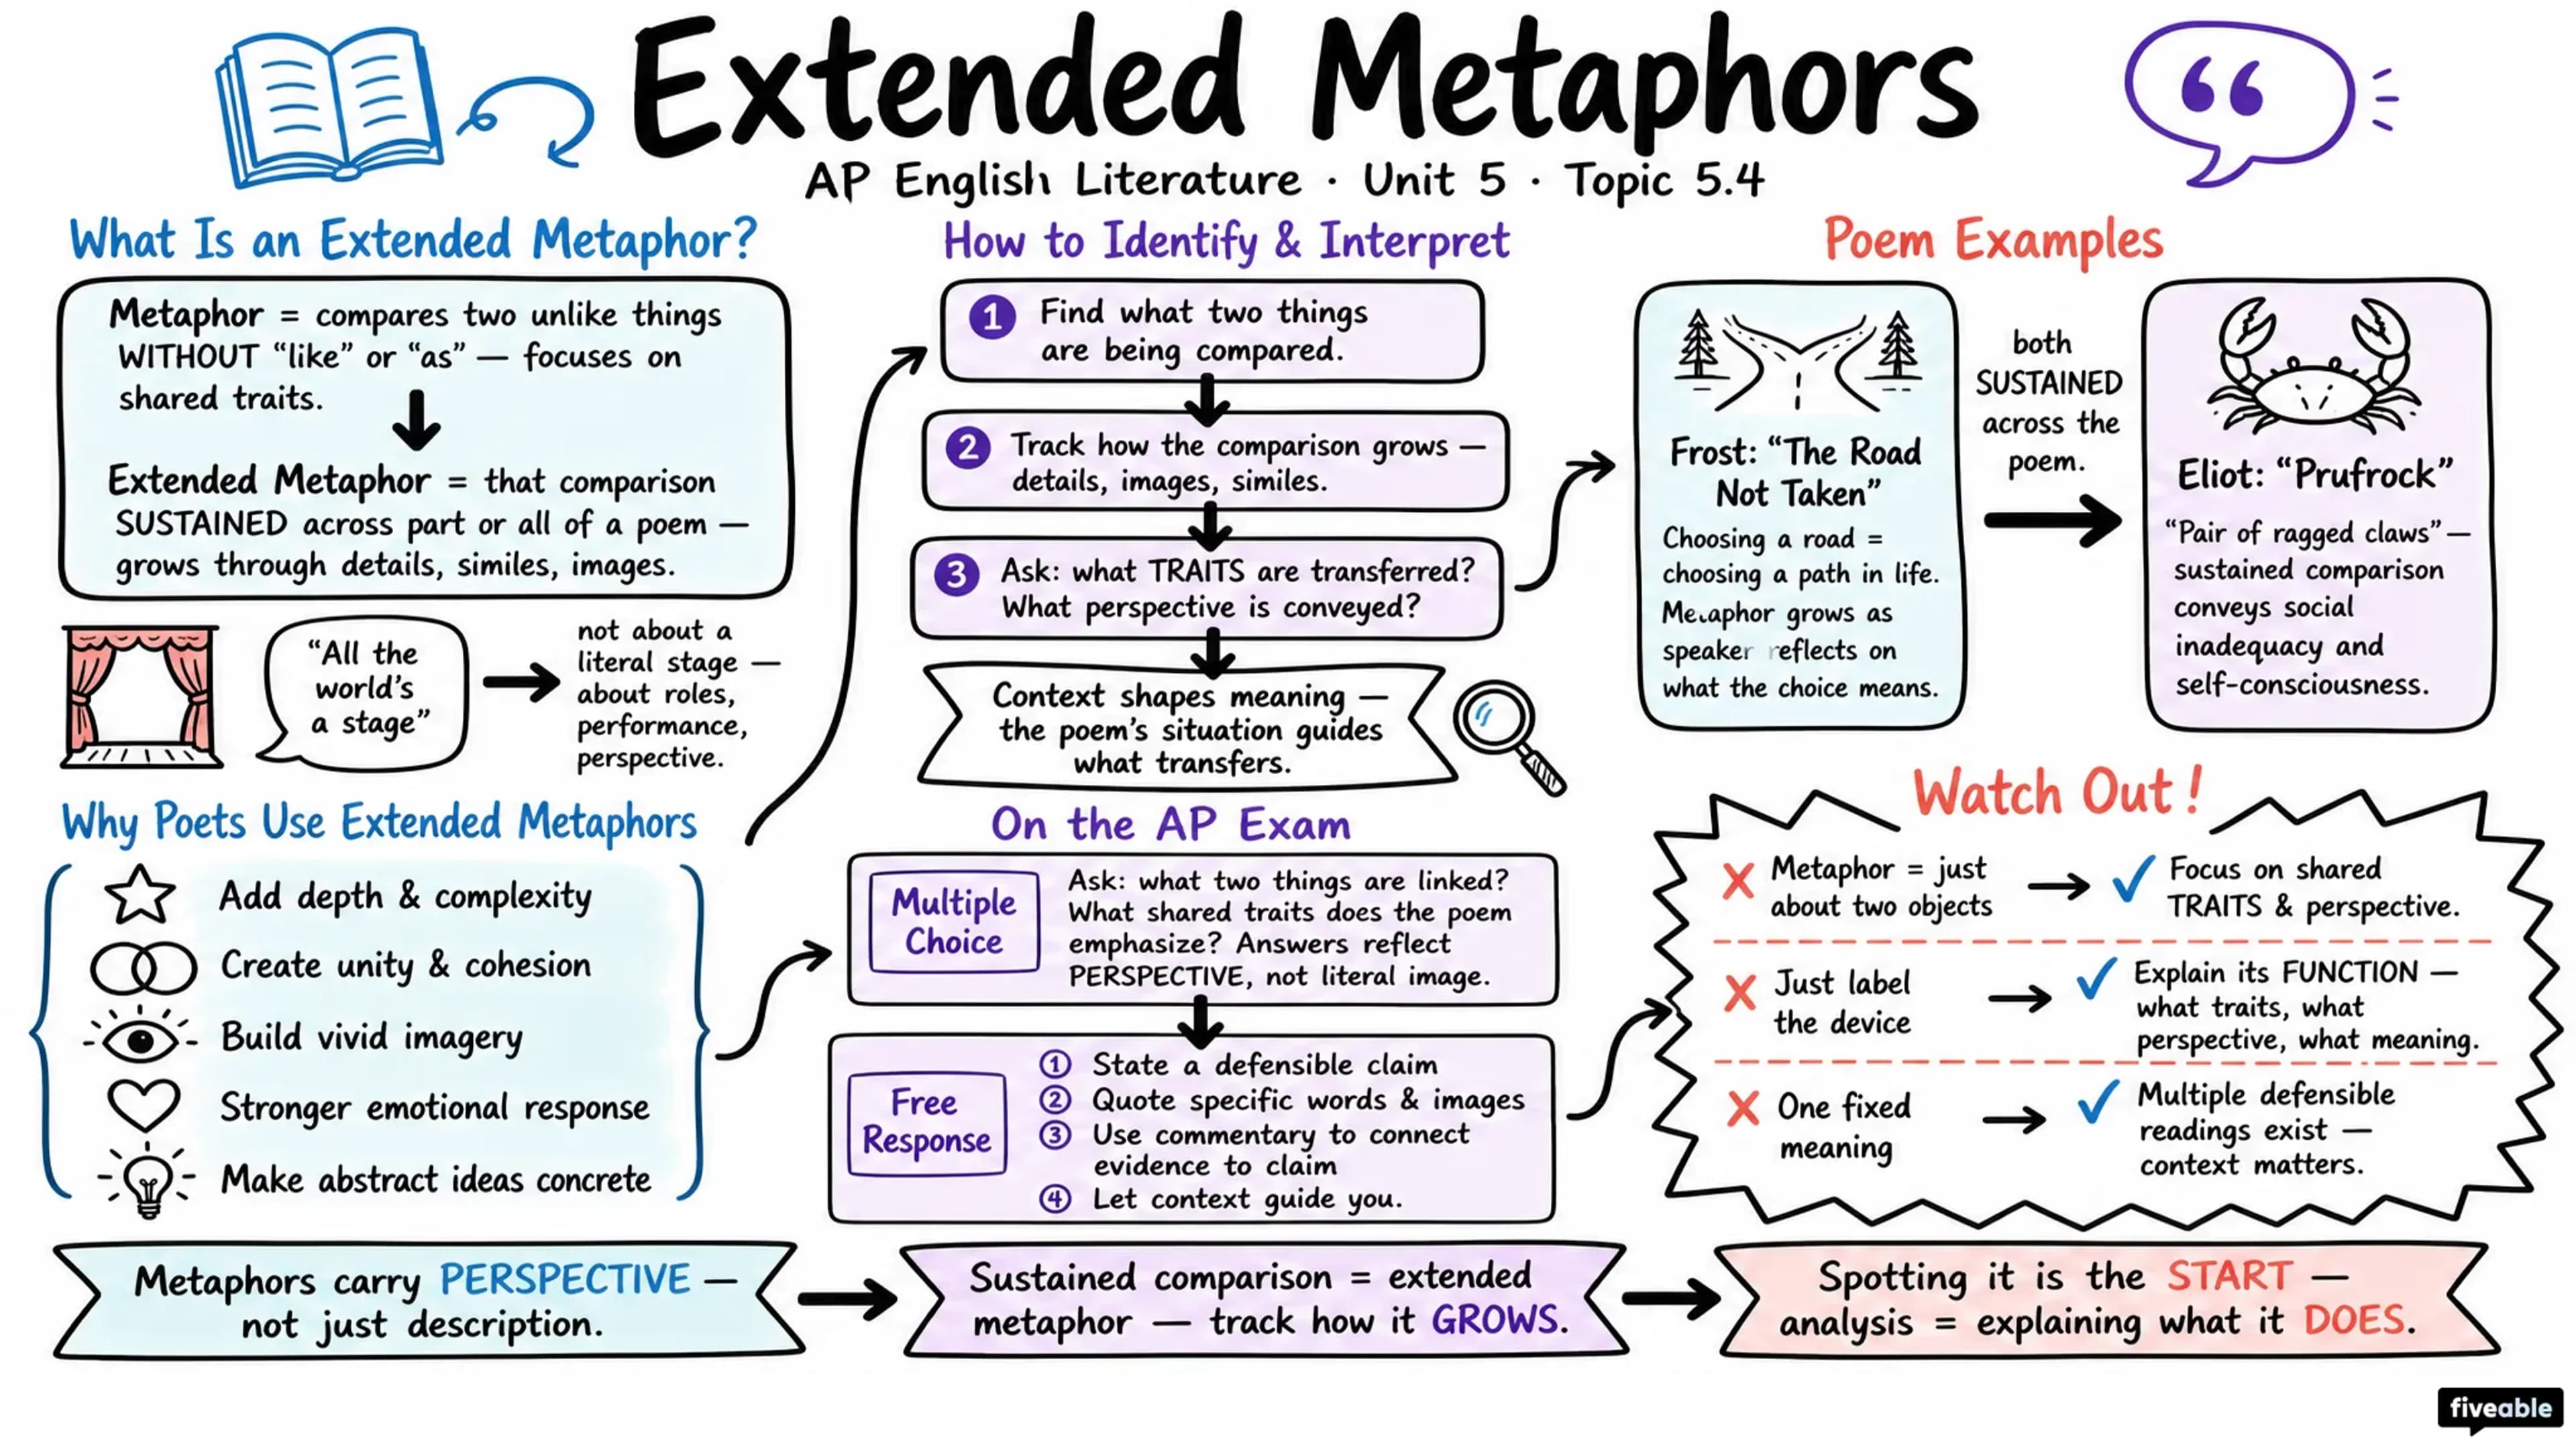 Extended Metaphors
AP English Literature · Unit 5 · Topic 5.4
What Is an Extended Metaphor?
Metaphor = compares two unlike things
WITHOUT “like” or “as” — focuses on
shared traits.
Extended Metaphor = that comparison
SUSTAINED across part or all of a poem —
grows through details, similes, images.
“All the
world’s
a stage”
not about a
literal stage —
about roles,
performance,
perspective.
Why Poets Use Extended Metaphors
Add depth & complexity
Create unity & cohesion
Build vivid imagery
Stronger emotional response
Make abstract ideas concrete
How to Identify & Interpret
1 Find what two things
are being compared.
2 Track how the comparison grows —
details, images, similes.
3 Ask: what TRAITS are transferred?
What perspective is conveyed?
Context shapes meaning —
the poem’s situation guides
what transfers.
On the AP Exam
Multiple
Choice
Ask: what two things are linked?
What shared traits does the poem
emphasize? Answers reflect
PERSPECTIVE, not literal image.
Free
Response
1 State a defensible claim
2 Quote specific words & images
3 Use commentary to connect
evidence to claim
4 Let context guide you.
Poem Examples
Frost: “The Road
Not Taken”
Choosing a road =
choosing a path in life.
Metaphor grows as
speaker reflects on
what the choice means.
both
SUSTAINED
across the
poem.
Eliot: “Prufrock”
“Pair of ragged claws” —
sustained comparison
conveys social
inadequacy and
self-consciousness.
Watch Out!
Metaphor = just
about two objects
Focus on shared
TRAITS & perspective.
Just label
the device
Explain its FUNCTION —
what traits, what
perspective, what meaning.
One fixed
meaning
Multiple defensible
readings exist —
context matters.
Metaphors carry PERSPECTIVE —
not just description.
Sustained comparison = extended
metaphor — track how it GROWS.
Spotting it is the START —
analysis = explaining what it DOES.
fiveable